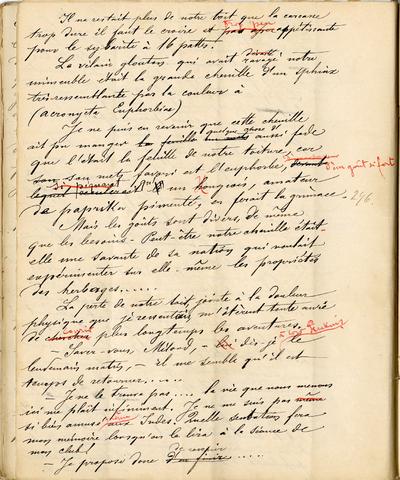 Il ne restait plus de notre toit que la carcasse
trop dure il faut le croire et trop peu appétissante
pour le sybarite à 16 pattes.
Le vilain glouton qui avait dévoré notre
immeuble était la grande chenille d'un Sphinx
très ressemblante par la couleur à
(acronycta Euphorbiae)
Je ne puis en revenir que cette chenille
ait pu manger quelque chose d'aussi fade
que l'était la feuille de notre toiture, car
son mets favori est l'euphorbe, d'un goût si fort
si piquant qu'un hongrois, amateur
de paprika pimentés, en ferait la grimace 276.
Mais les goûts sont divers, de même
que les besoins. Peut-être notre chenille était-
elle une savante de sa nation qui voulait
expérimenter sur elle-même les propriétés
des herbages......
La perte de notre toit, jointe à la douleur
physique que je ressentais, m'ôtèrent toute envie
de courir plus longtemps les aventures.
- Savez-vous, Milord, - dis-je le
lendemain matin, - il me semble qu'il est
temps de retourner.....
- Je ne le trouve pas.... la vie que nous menons
ici me plaît infiniment. Je ne me suis pas
si bien amusé même aux Indes. Quelle sensation fera
mon mémoire lorsqu'on le lira à la séance de
mon club!
- Je propose donc de revenir .....